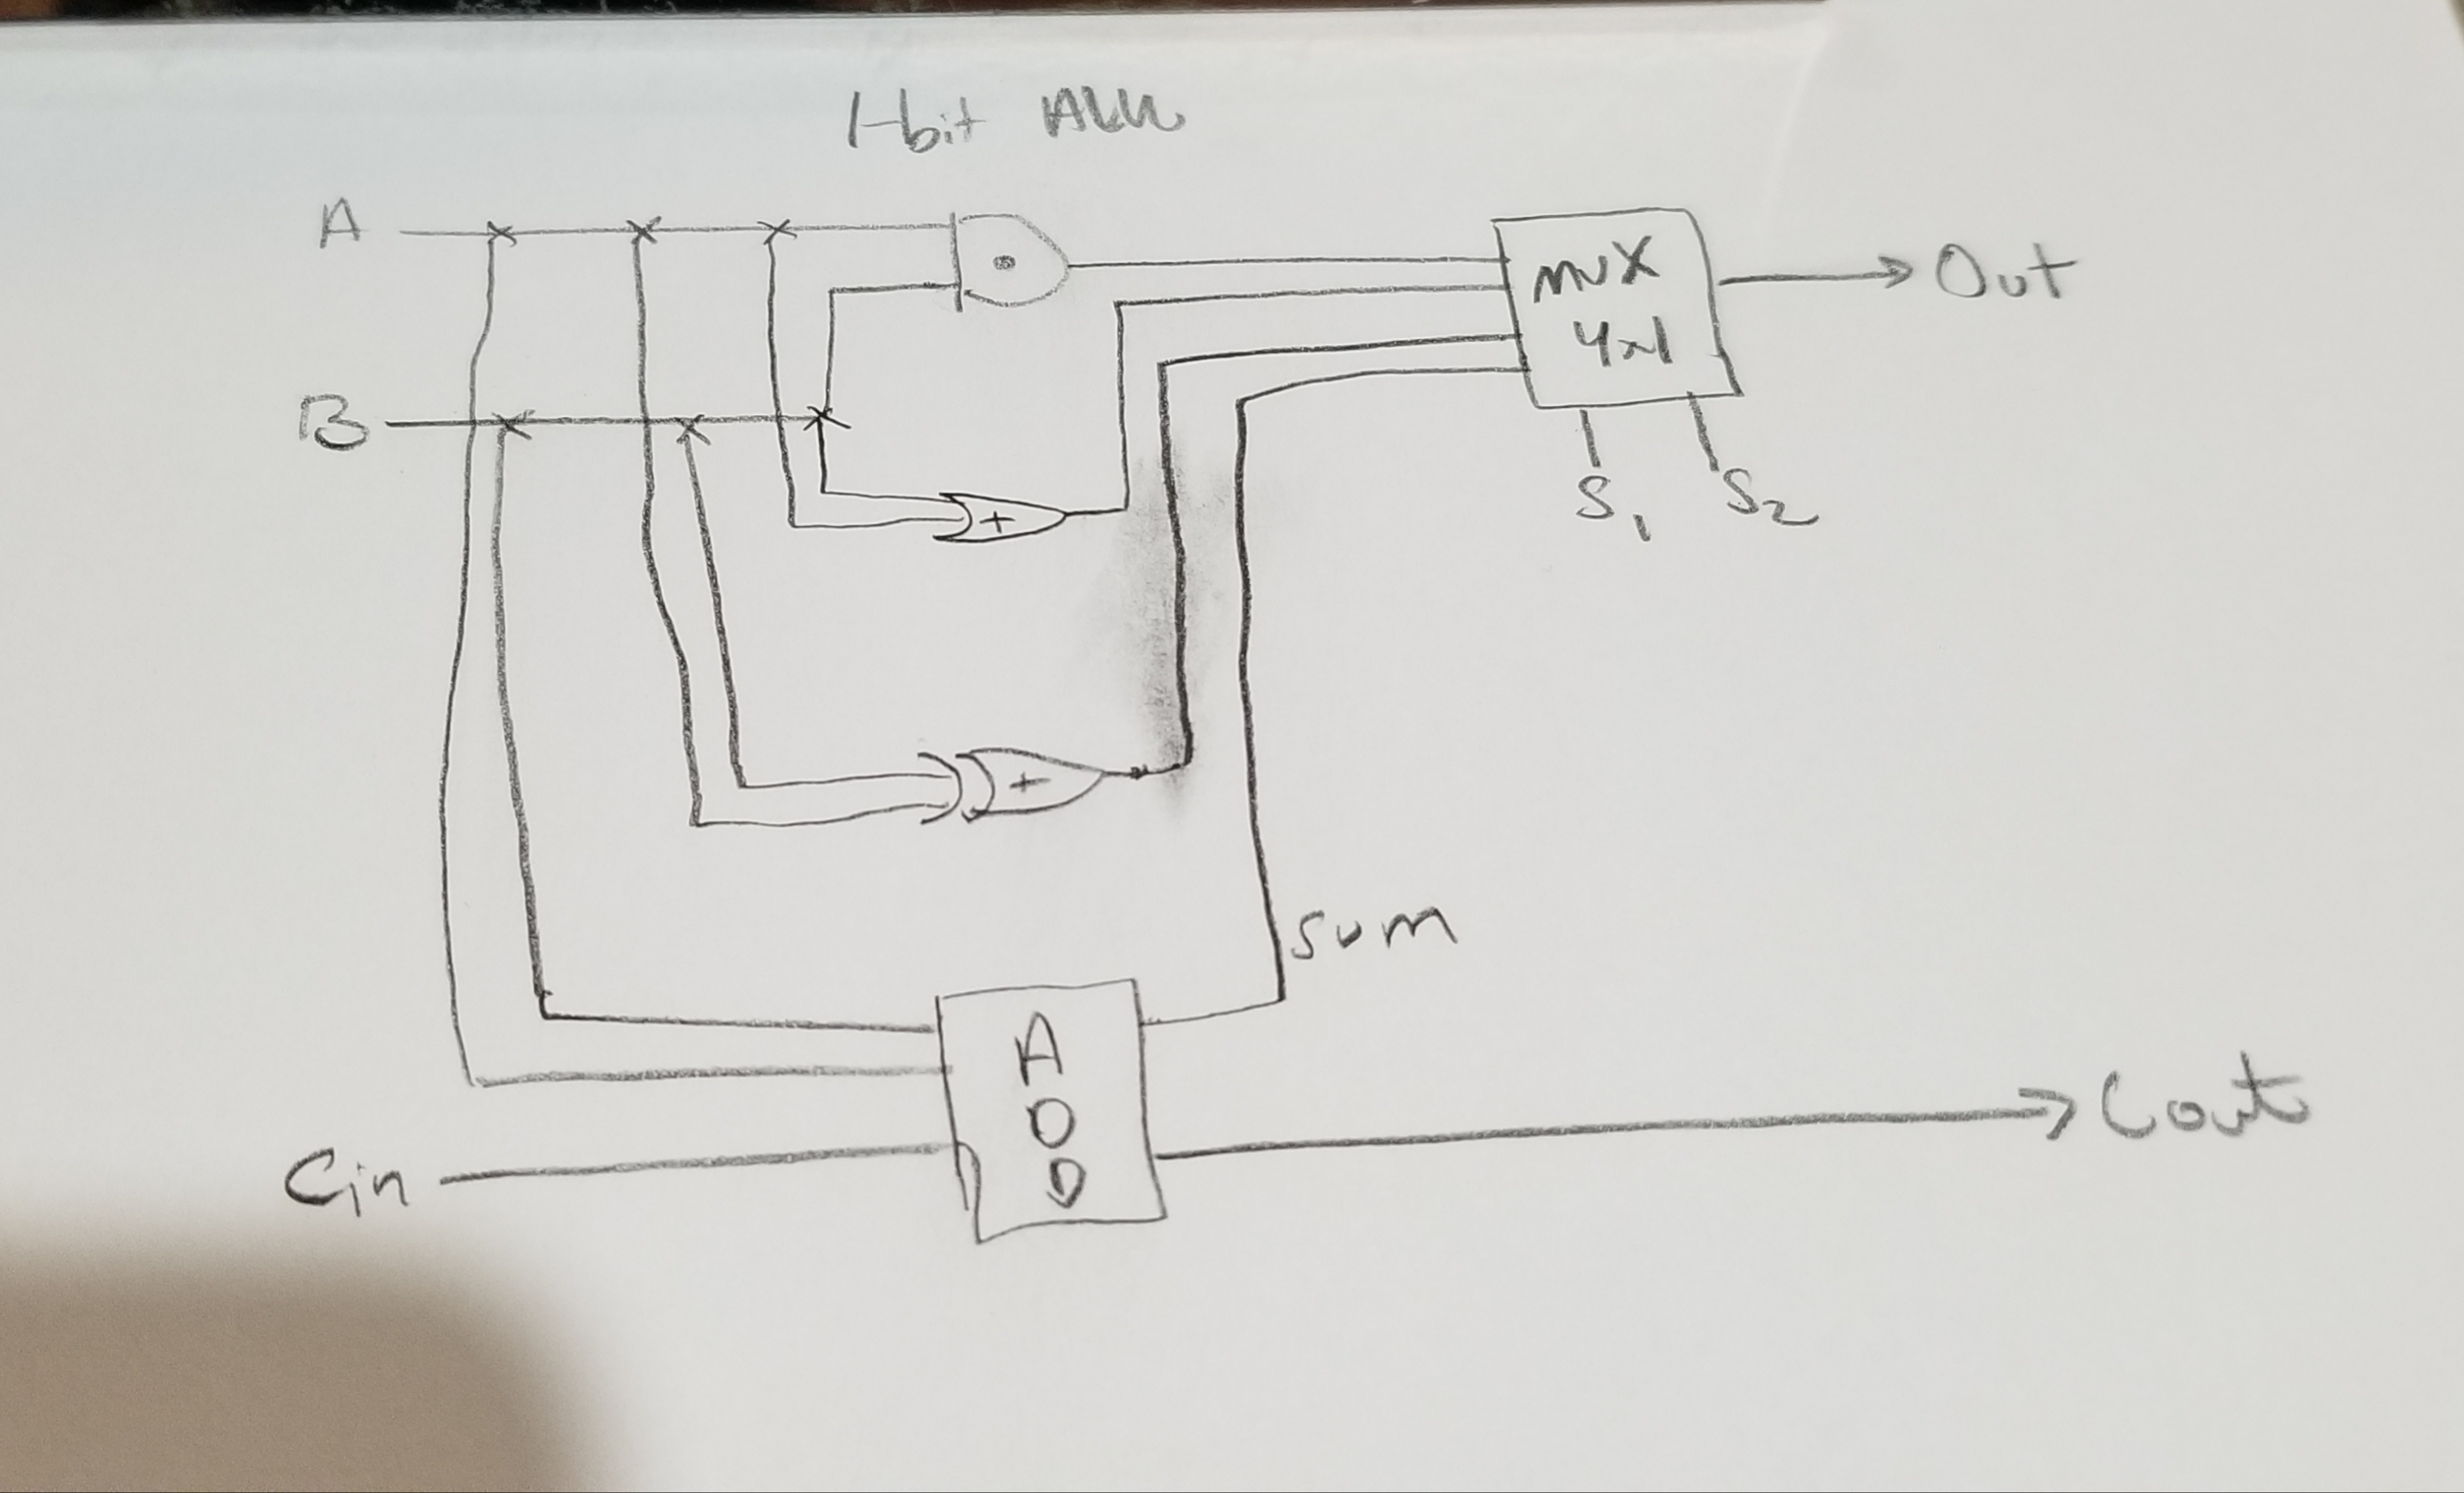 1-bit ALU
A
MUX
4x1
Out
B
S1
S2
+
+
sum
ADD
Cin
Cout